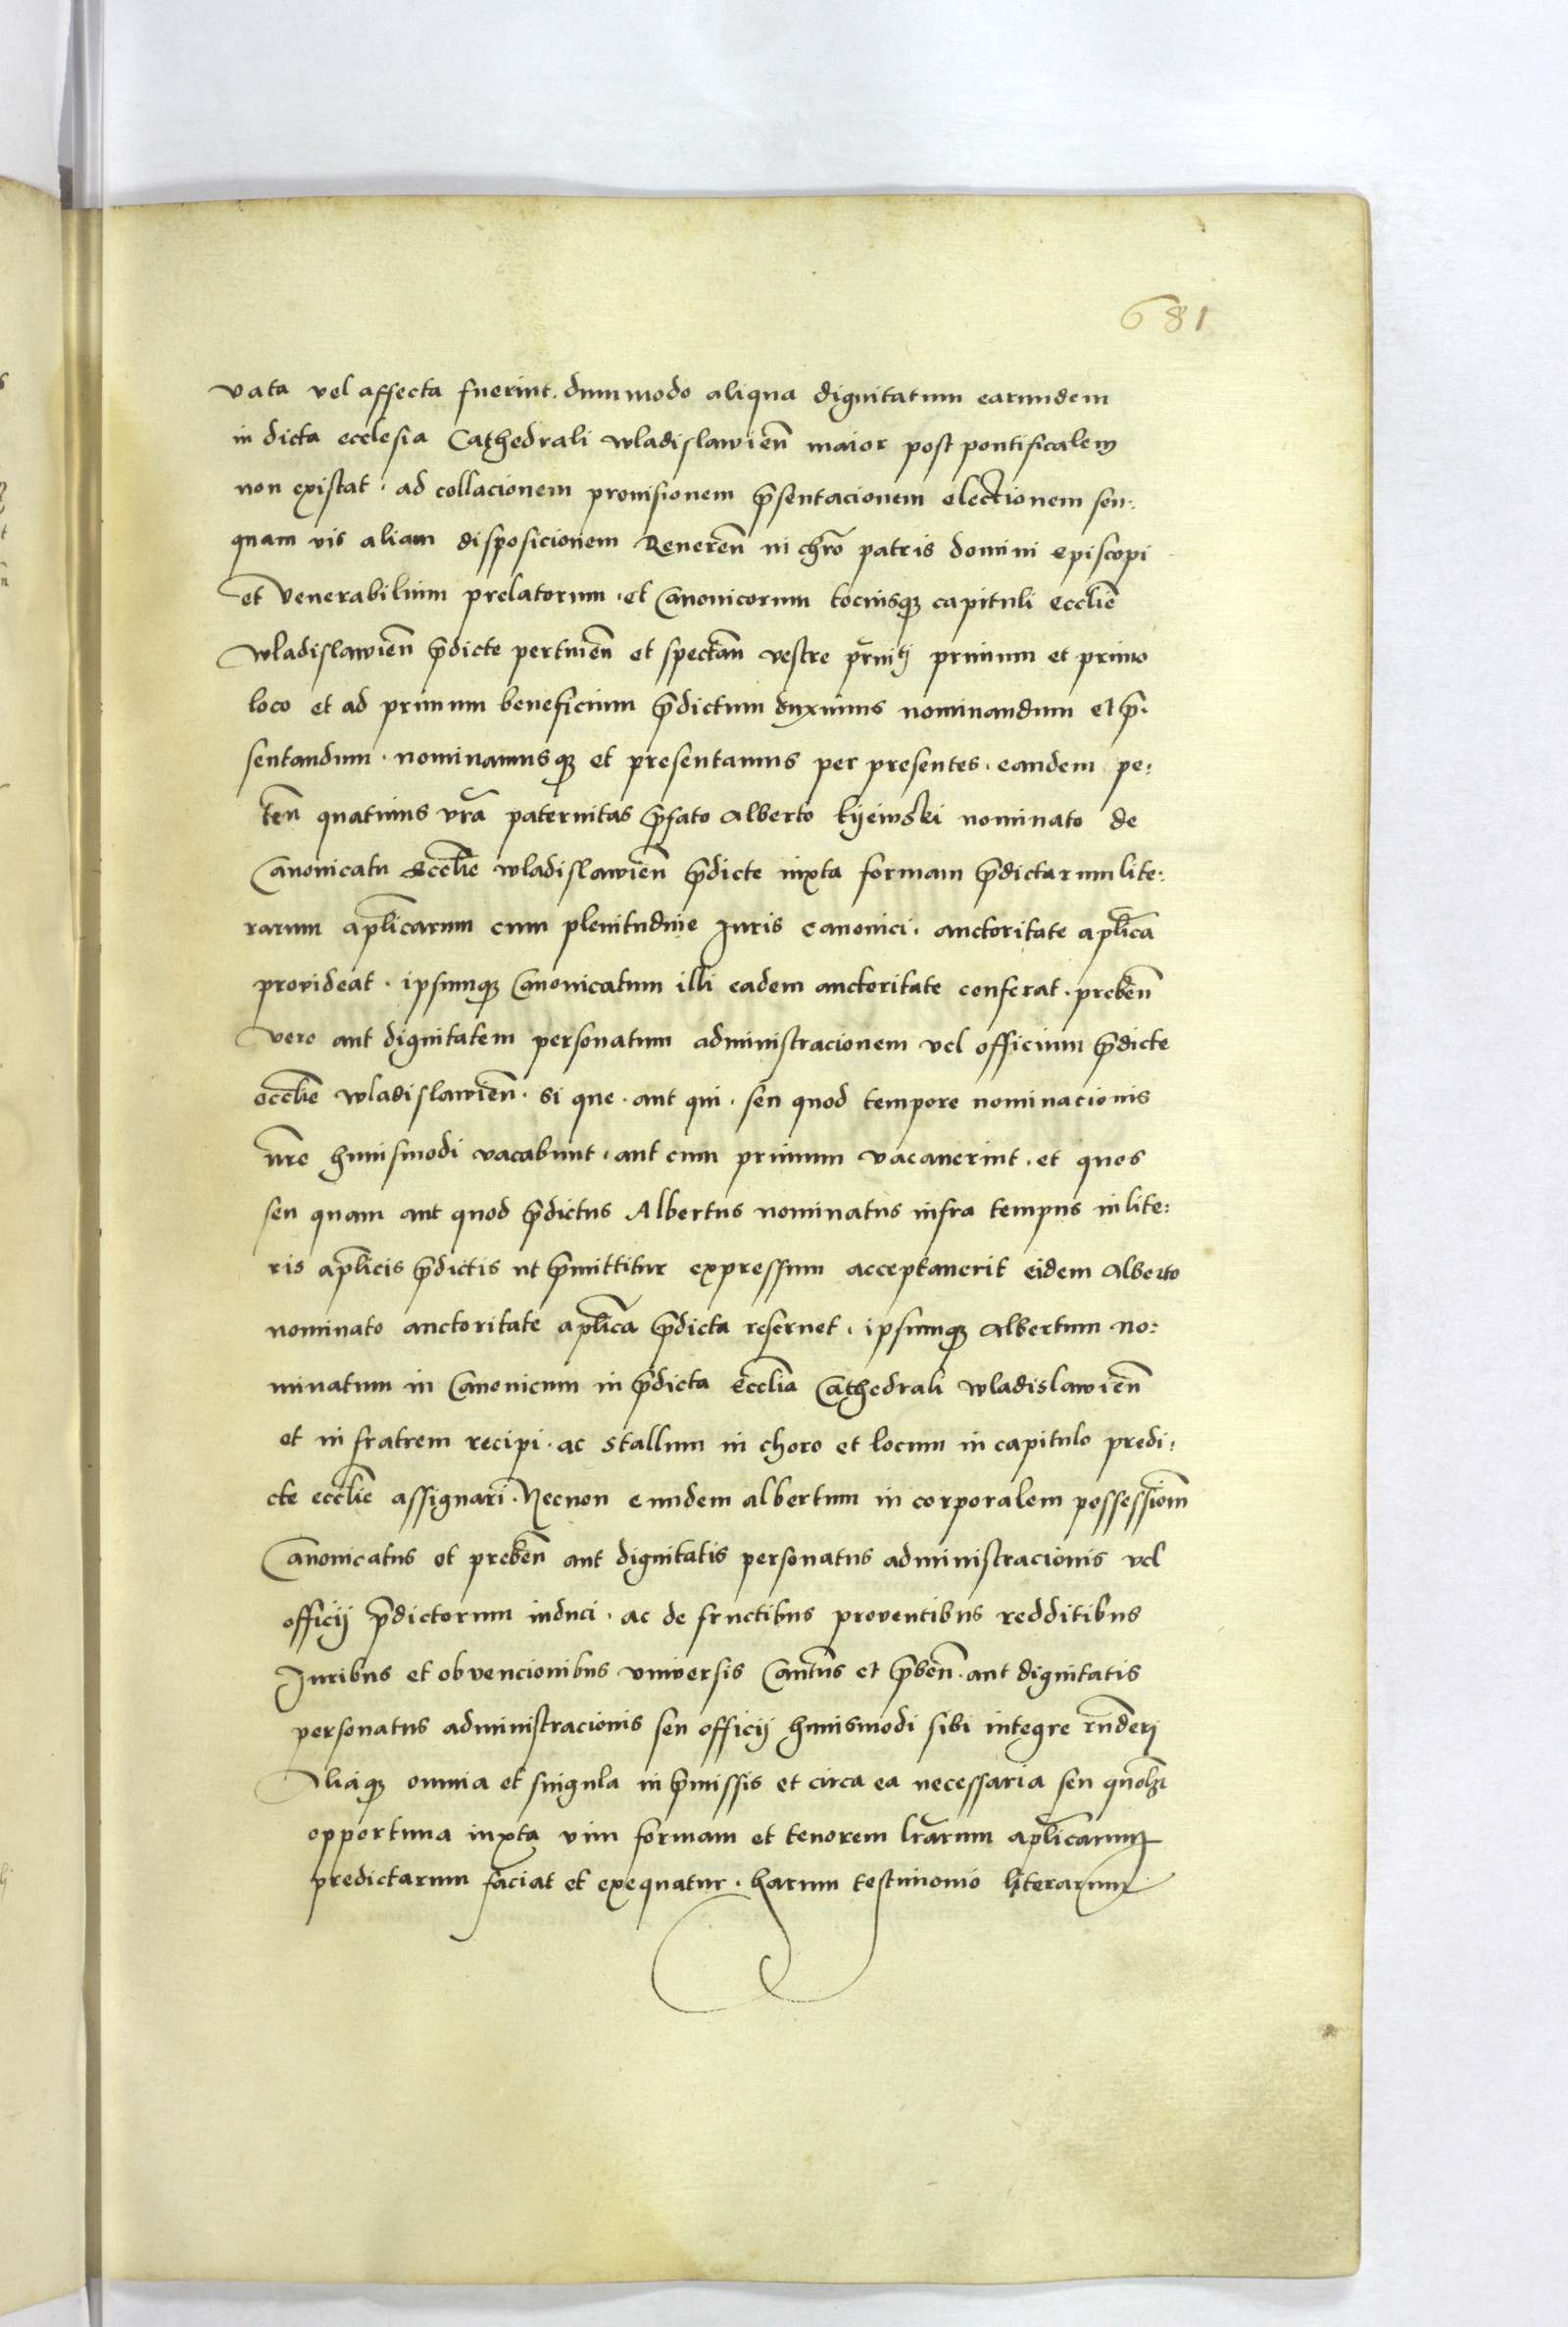 681
vata vel affecta fuerint. dummodo aliqua dignitatum earumdem
in dicta ecclesia Cathedrali wladislawien̄ maior post pontificalem
non existat. ad collacionem provisionem p̄sentacionem electionem seu:
quam vis aliam disposicionem Reveren̄ in chr̄o patris domini episcopi
et venerabilium prelatorum. et Canonicorum tociusqꝫ capituli eccl̄ie
wladislawien̄ p̄dicte pertinen̄ et spectan̄ vestre pr̄nitj primum et primo
loco et ad primum beneficium p̄dictum duximus nominandum et p̄.
sentandum. nominamusqꝫ et presentamus per presentes. eandem pe:
ten̄ quatinus vr̄a paternitas p̄fato Alberto kijewski nominato de
Canonicatu Eccl̄ie wladislawien̄ p̄dicte iuxta formam p̄dictarum lite:
rarum ap̄licarum cum plenitudine Juris canonici. auctoritate ap̄lica
provideat. ipsumqꝫ Canonicatum illi eadem auctoritate conferat. preben̄
vero aut dignitatem personatum administracionem vel officium p̄dicte
eccl̄ie wladislawien̄. si que. aut qui. seu quod tempore nominacionis
nr̄e huiusmodi vacabunt. aut cum primum vacaverint. et quos
seu quam aut quod p̄dictus Albertus nominatus infra tempus in lite:
ris ap̄licis p̄dictis ut p̄mittitur expressum acceptaverit eidem Alberto
nominato auctoritate ap̄lica p̄dicta reservet. ipsumqꝫ Albertum no:
minatum in Canonicum in p̄dicta eccl̄ia Cathedrali wladislawien̄
et in fratrem recipi. ac stallum in choro et locum in capitulo predi:
cte eccl̄ie assignari. Necnon eundem albertum in corporalem possessiom̄
Canonicatus et preben̄ aut dignitatis personatus administracionis vel
officij p̄dictorum induci. ac de fructibus proventibus redditibus
Juribus et obvencionibus universis Can̄tus et p̄ben̄. aut dignitatis
personatus administracionis seu officij huiusmodi sibi integre rn̄derj
Aliaqꝫ omnia et singula in p̄missis et circa ea necessaria seu quōlꝫt
opportuna iuxta vim formam et tenorem lr̄arum ap̄licarum
predictarum faciat et exequatur. harum testimonio literarum